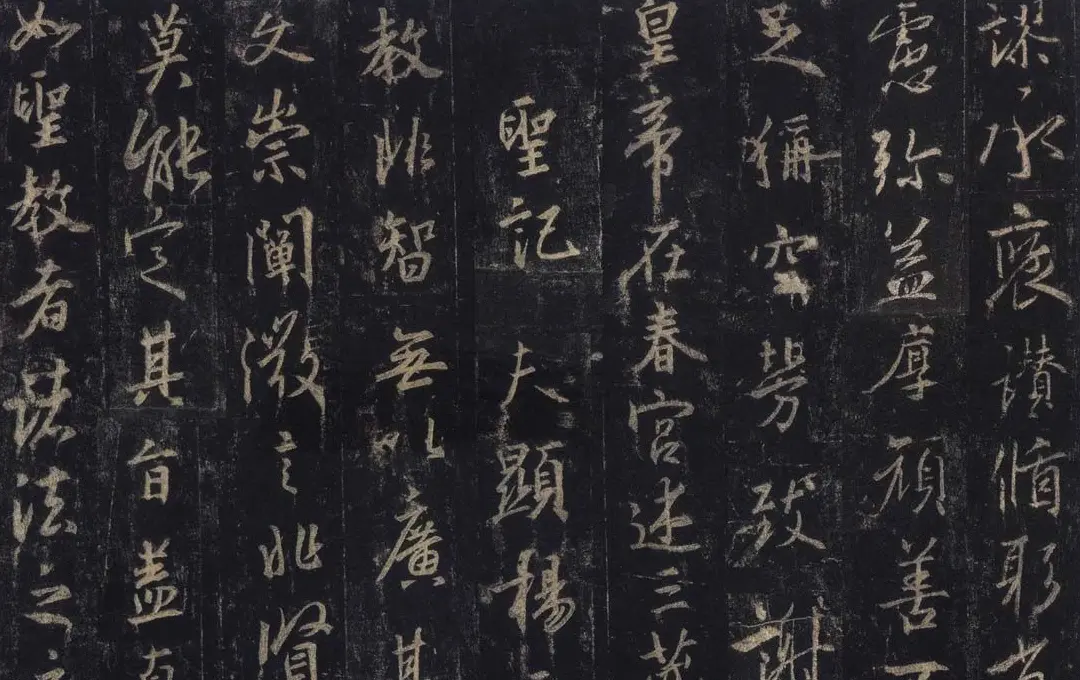 謬承褒讚循躬
慮弥益厚顏善
足稱空勞致謝
皇帝在春宮述三
聖記 夫顯揚
教非智無以廣其
文崇闡微言非賢
莫能定其旨蓋真
如聖教者諸法之